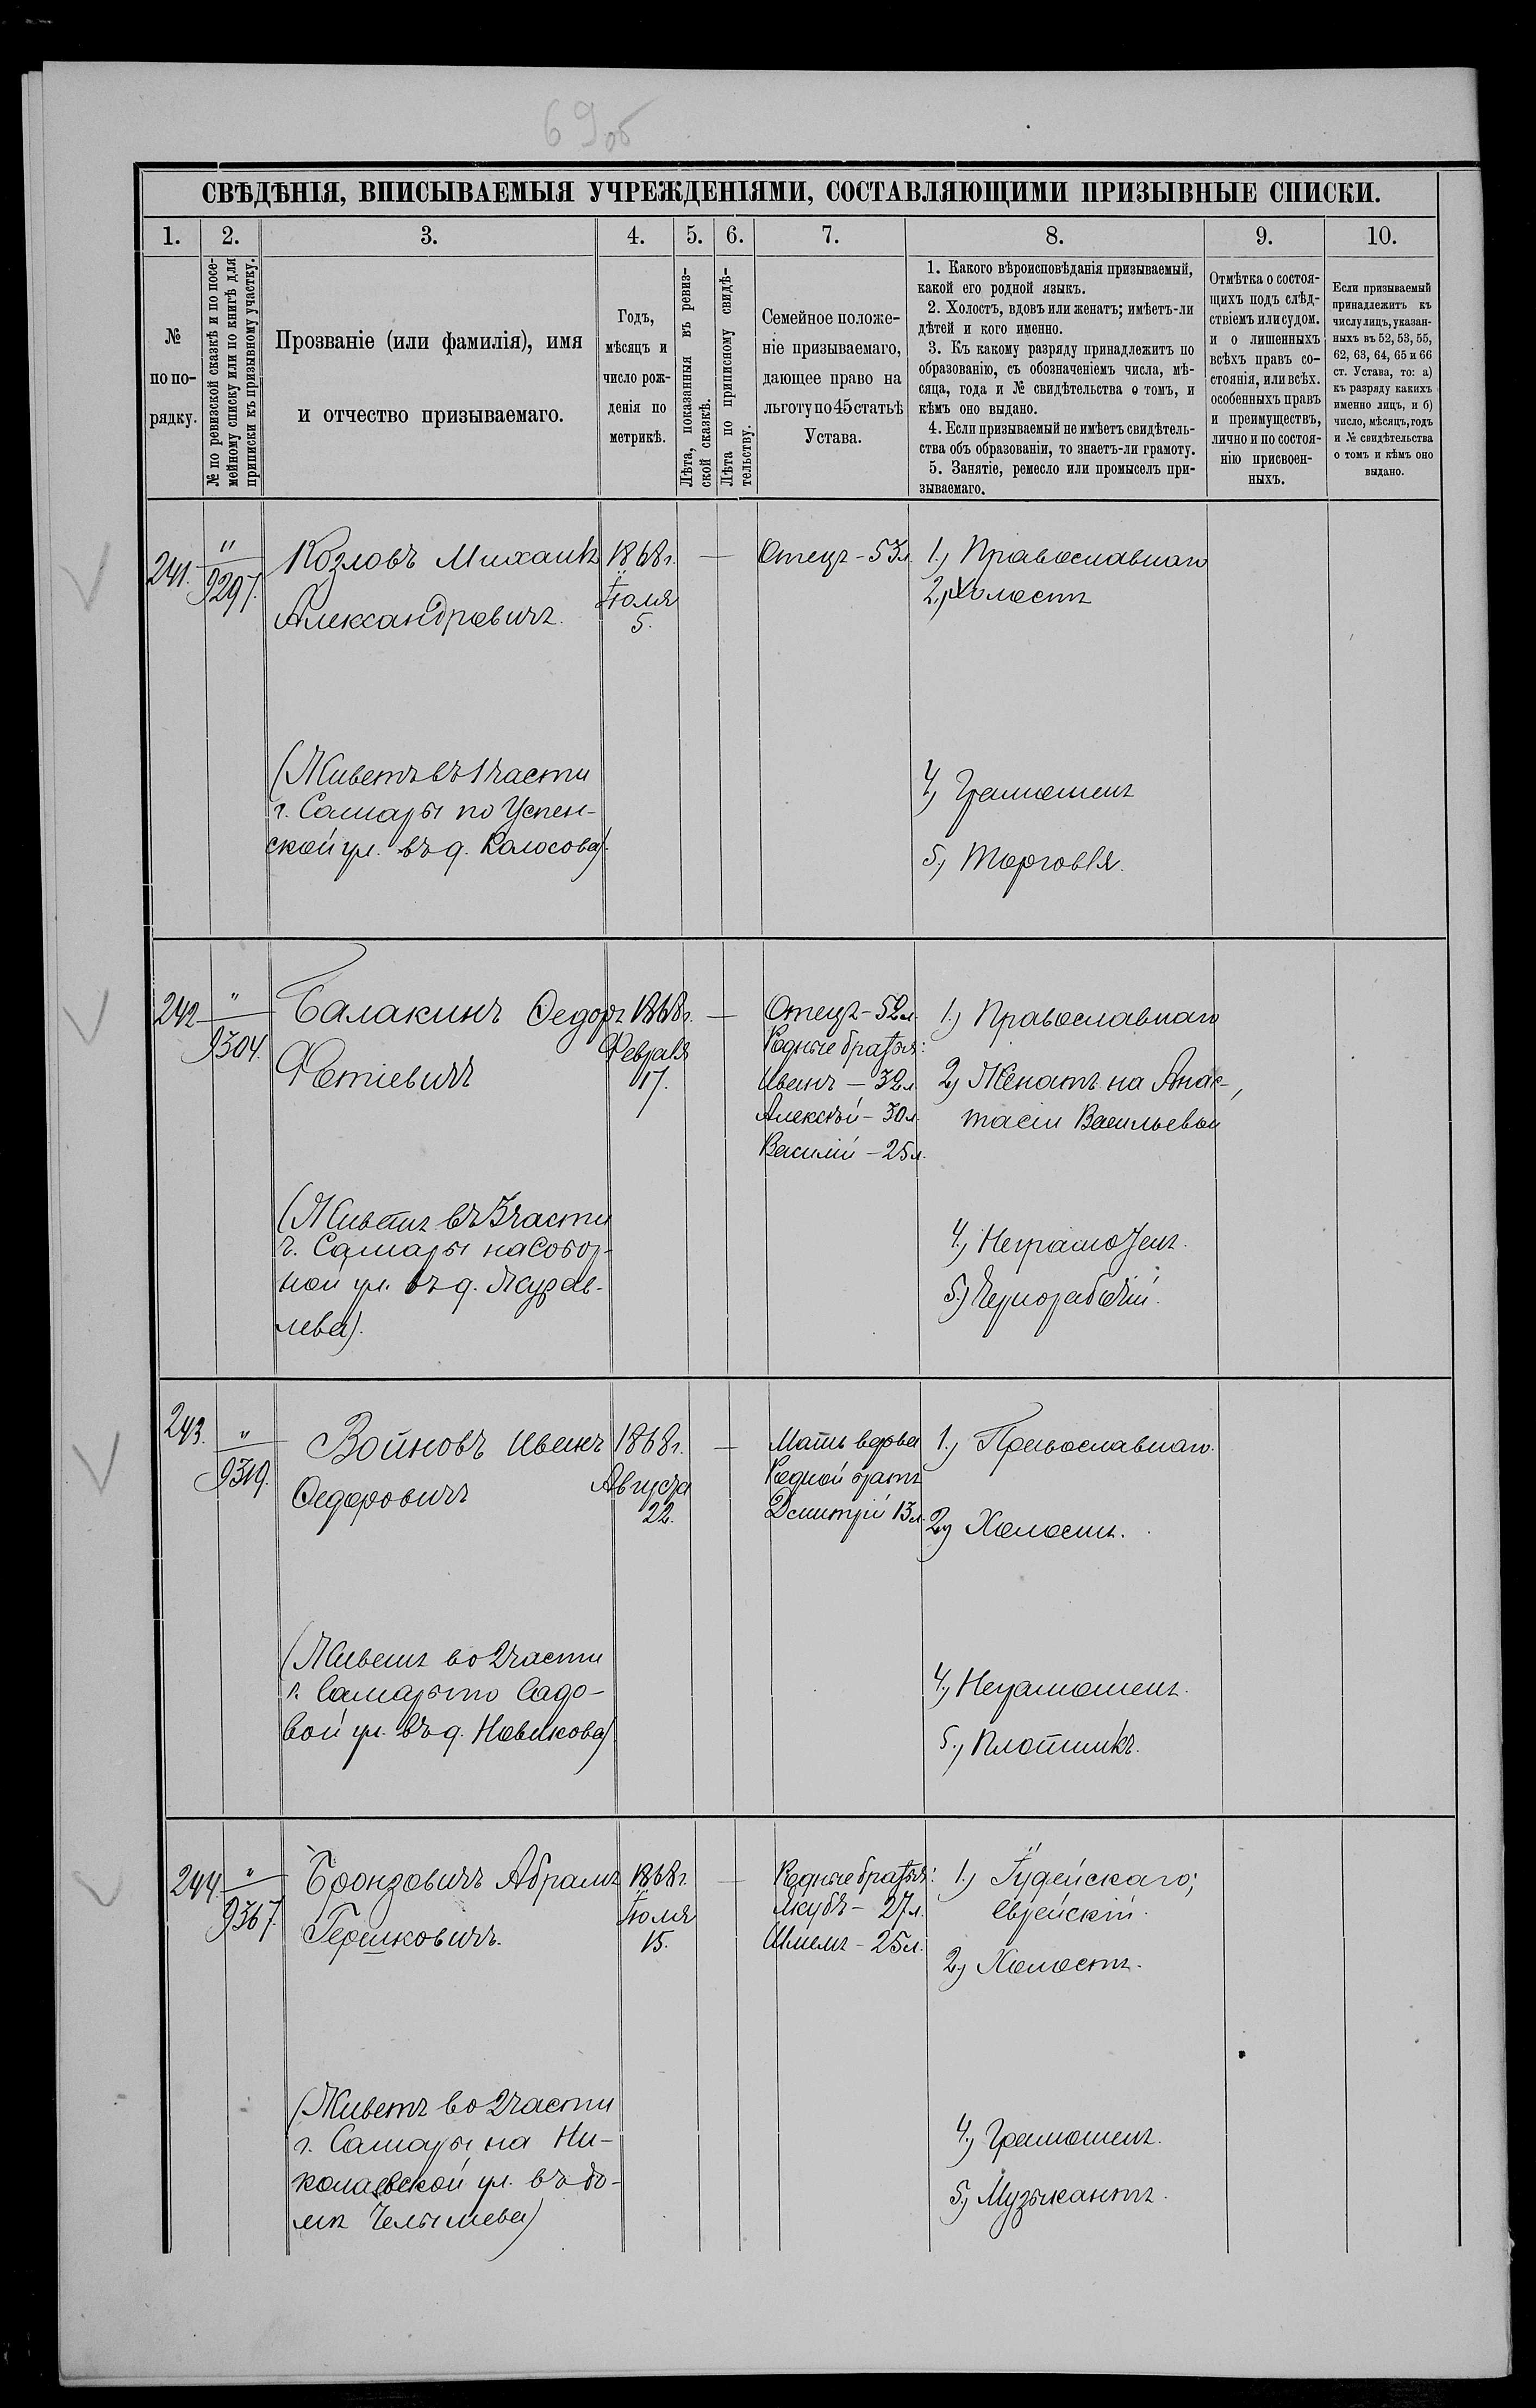 69об
СВѢДѢНІЯ, ВПИСЫВАЕМЫЯ УЧРЕЖДЕНІЯМИ, СОСТАВЛЯЮЩИМИ ПРИЗЫВНЫЕ СПИСКИ.
1. 2. 3. 4. 5. 6. 7. 8. 9. 10.
№
по по-
рядку.
№ по ревизской сказкѣ и по посе-
мейному списку или по книгѣ для
приписки къ призывному участку.
Прозваніе (или фамилія), имя
и отчество призываемаго.
Годъ,
мѣсяцъ и
число рож-
денія по
метрикѣ.
Лѣта, показанныя въ ревиз-
ской сказкѣ.
Лѣта по приписному свидѣ-
тельству.
Семейное положе-
ніе призываемаго,
дающее право на
льготу по 45 статьѣ
Устава.
1. Какого вѣроисповѣданія призываемый,
какой его родной языкъ.
2. Холостъ, вдовъ или женатъ; имѣетъ-ли
дѣтей и кого именно.
3. Къ какому разряду принадлежитъ по
образованію, съ обозначеніемъ числа, мѣ-
сяца, года и № свидѣтельства о томъ, и
кѣмъ оно выдано.
4. Если призываемый не имѣетъ свидѣтель-
ства объ образованіи, то знаетъ-ли грамоту.
5. Занятіе, ремесло или промыселъ при-
зываемаго.
Отмѣтка о состоя-
щихъ подъ слѣд-
ствіемъ или судом.
и о лишенныхъ
всѣхъ правъ со-
стоянія, или всѣх.
особенныхъ правъ
и преимуществъ,
лично и по состоя-
нію присвоен-
ныхъ.
Если призываемый
принадлежитъ къ
числу лицъ, указан-
ныхъ въ 52, 53, 55,
62, 63, 64, 65 и 66
ст. Устава, то: а)
къ разряду какихъ
именно лицъ, и б)
число, мѣсяцъ, годъ
и № свидѣтельства
о томъ и кѣмъ оно
выдано.
241.
"
9297.
Козловъ Михаилъ
Александровичъ.
(Живетъ въ 1 части
г. Самары по Успен-
ской ул. въ д. Колосова).
1868 г.
Іюля
5.
—
Отецъ - 53 л.
1.) Православнаго
2.) Холостъ
4.) Грамотенъ
5.) Торговля.
242
"
9304.
Балакинъ Федоръ
Фотіевичъ
(Живетъ въ 3 части
г. Самары на Собор-
ной ул. въ д. Журав-
лева).
1868 г.
Февраля
17.
—
Отецъ - 52 л.
Родные братья:
Иванъ - 32 л.
Алексѣй - 30 л.
Василій - 25 л.
1.) Православнаго
2.) Женатъ на Анас-
тасіи Васильевой
4.) Неграмотенъ.
5.) Чернорабочій.
243.
"
9319.
Войновъ Иванъ
Федоровичъ
(Живетъ во 2 части
г. Самары по Садо-
вой ул. въ д. Новикова)
1868 г.
Августа
22.
—
Мать вдова
Родной братъ
Дмитрій 13 л.
1.) Православнаго.
2.) Холостъ.
4.) Неграмотенъ.
5.) Плотникъ.
244.
"
9367.
Бронзовичъ Абрамъ
Гершковичъ.
(Живетъ во 2 части
г. Самары на Ни-
колаевской ул. въ до-
мѣ Челышева)
1868 г.
Іюля
15.
—
Родные братья:
Якубъ - 27 л.
Шмелъ - 25 л.
1.) Іудейскаго;
еврейскій.
2.) Холостъ.
4.) Грамотенъ.
5.) Музыкантъ.